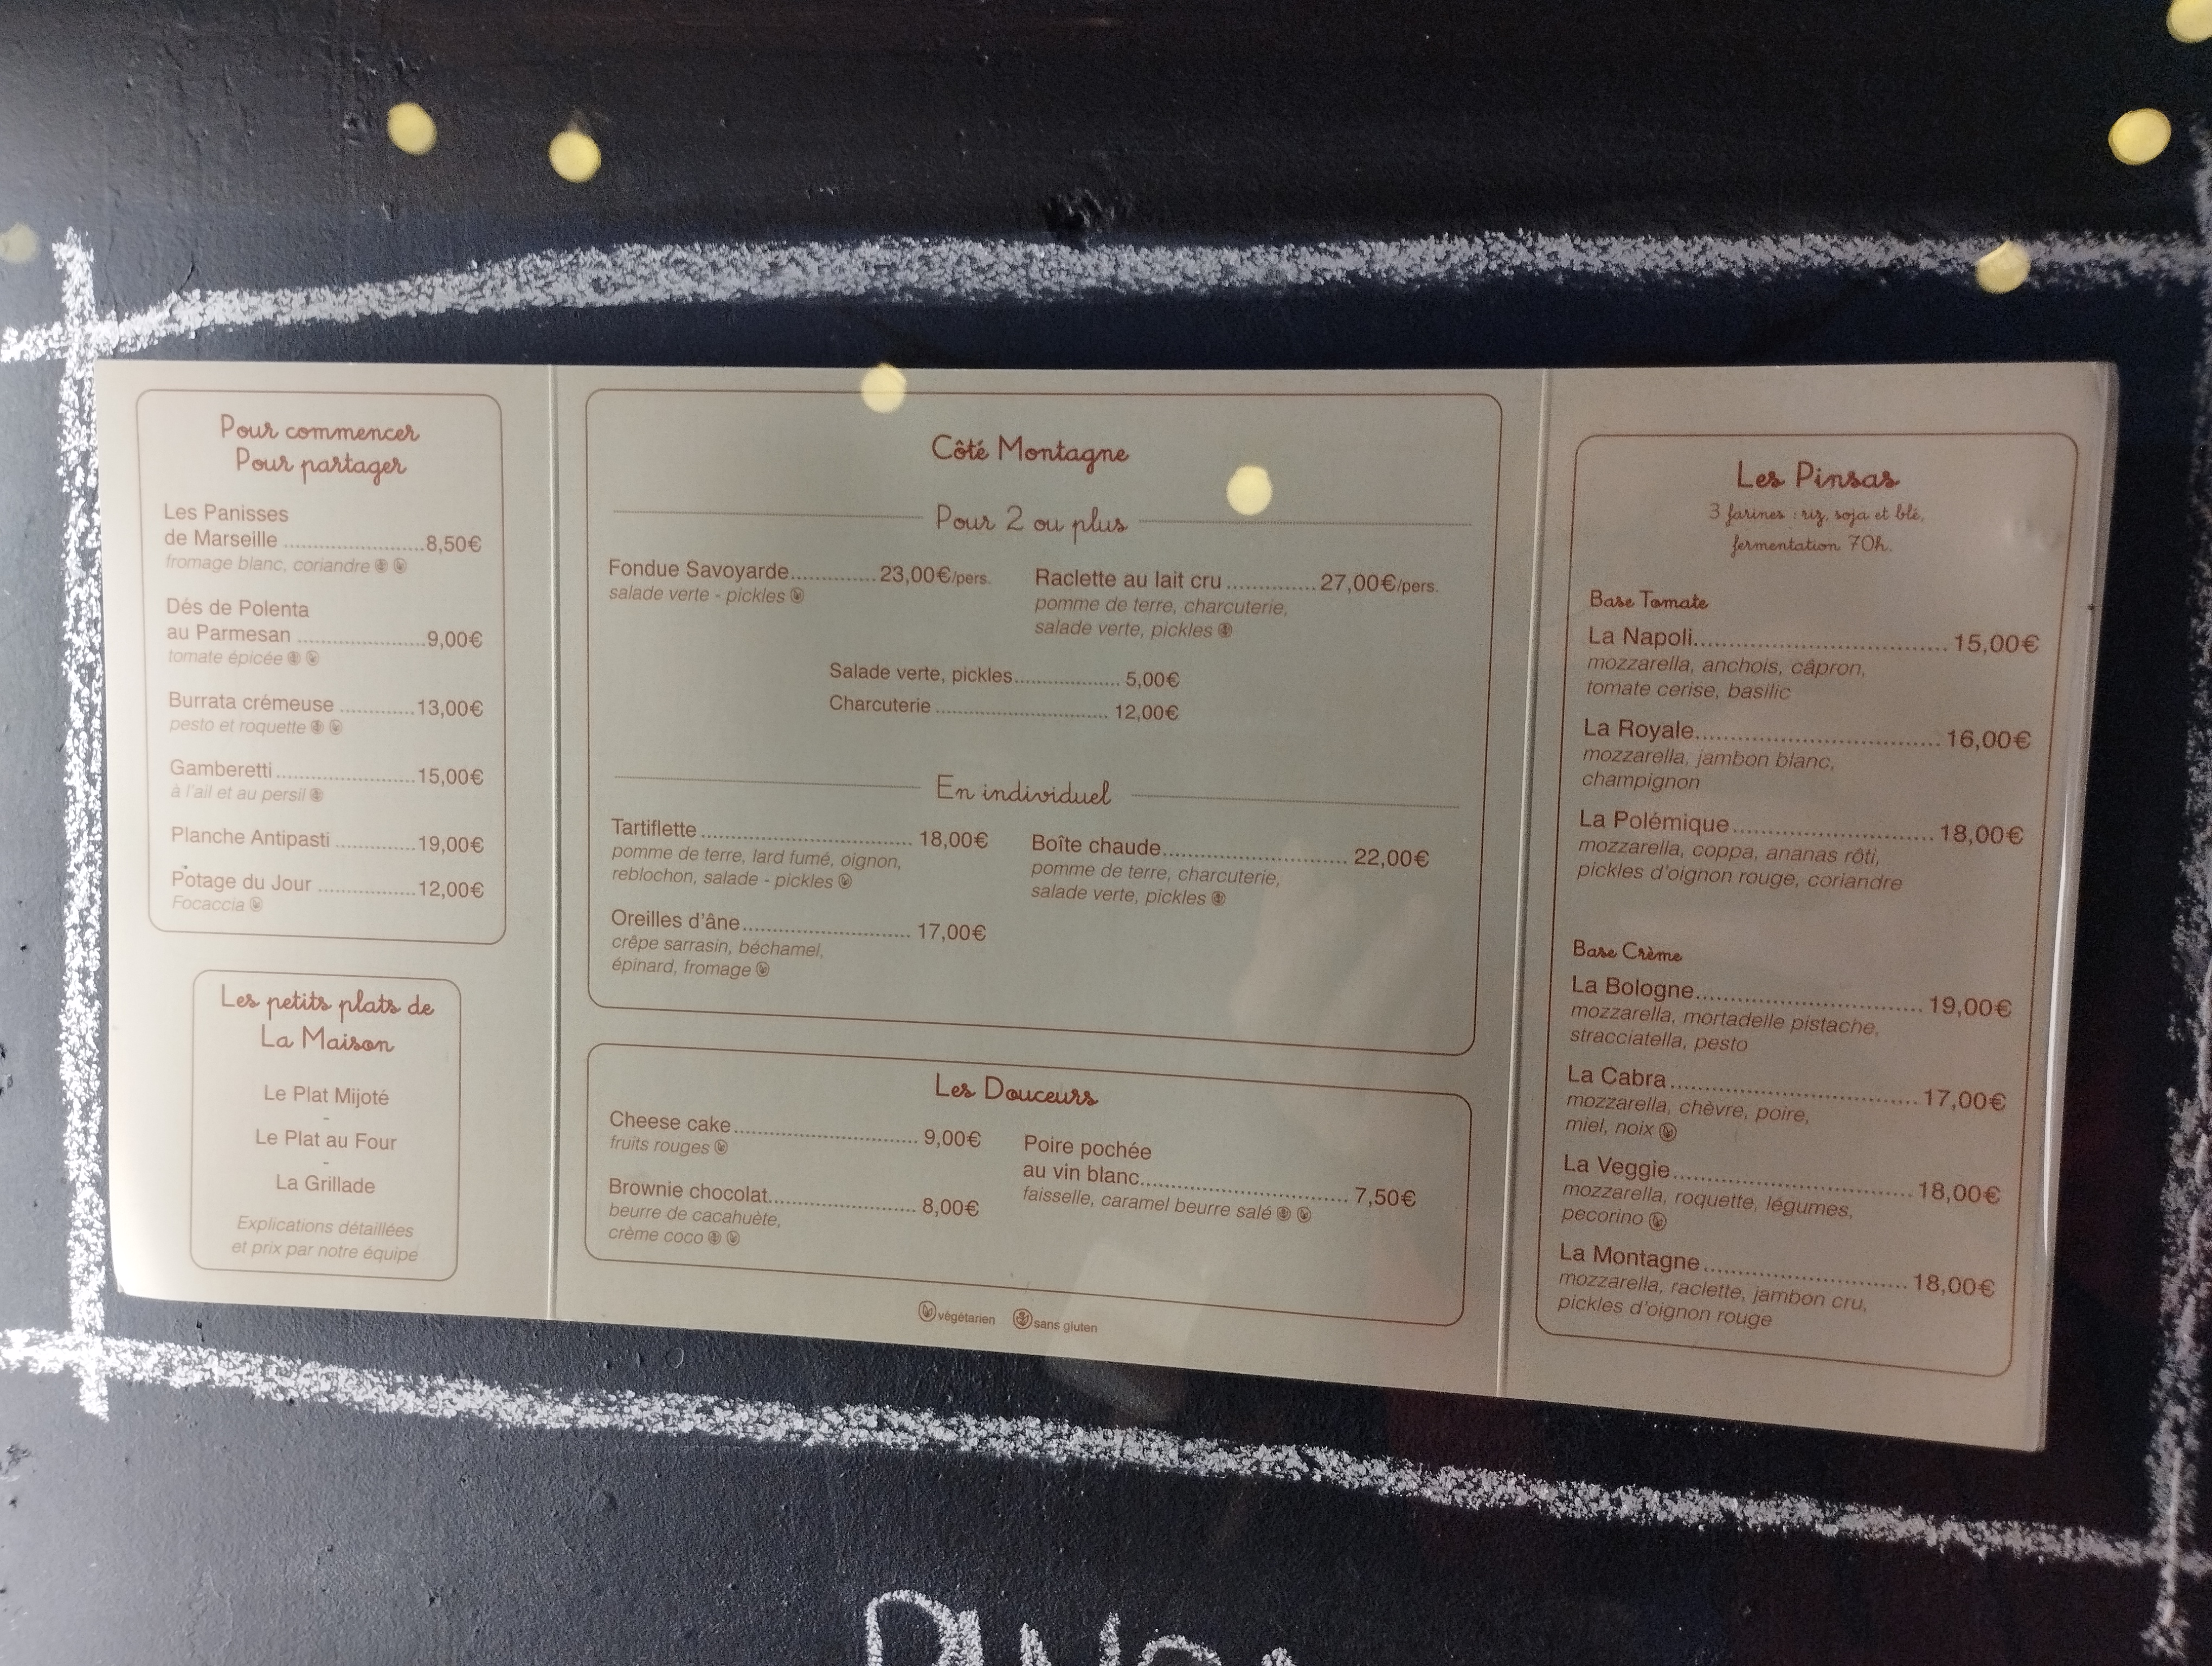 Pour commencer
Pour partager
Les Panisses
de Marseille ........................8,50€
fromage blanc, coriandre
Dés de Polenta
au Parmesan ......................9,00€
tomate épicée
Burrata crémeuse .............13,00€
pesto et roquette
Gamberetti ........................15,00€
à l'ail et au persil
Planche Antipasti ..............19,00€
-
Potage du Jour .................12,00€
Focaccia
Les petits plats de
La Maison
Le Plat Mijoté
-
Le Plat au Four
-
La Grillade
Explications détaillées
et prix par notre équipe
Côté Montagne
Pour 2 ou plus
Fondue Savoyarde..............23,00€/pers.
salade verte - pickles
Raclette au lait cru ...............27,00€/pers.
pomme de terre, charcuterie,
salade verte, pickles
Salade verte, pickles.................. 5,00€
Charcuterie .............................. 12,00€
En individuel
Tartiflette .................................... 18,00€
pomme de terre, lard fumé, oignon,
reblochon, salade - pickles
Oreilles d'âne............................. 17,00€
crêpe sarrasin, béchamel,
épinard, fromage
Boîte chaude................................ 22,00€
pomme de terre, charcuterie,
salade verte, pickles
Les Douceurs
Cheese cake............................... 9,00€
fruits rouges
Brownie chocolat......................... 8,00€
beurre de cacahuète,
crème coco
Poire pochée
au vin blanc.................................. 7,50€
faisselle, caramel beurre salé
végétarien sans gluten
Les Pinsas
3 farines : riz, soja et blé,
fermentation 70h.
Base Tomate
La Napoli.................................... 15,00€
mozzarella, anchois, câpron,
tomate cerise, basilic
La Royale................................... 16,00€
mozzarella, jambon blanc,
champignon
La Polémique............................. 18,00€
mozzarella, coppa, ananas rôti,
pickles d'oignon rouge, coriandre
Base Crème
La Bologne................................. 19,00€
mozzarella, mortadelle pistache,
stracciatella, pesto
La Cabra.................................... 17,00€
mozzarella, chèvre, poire,
miel, noix
La Veggie................................... 18,00€
mozzarella, roquette, légumes,
pecorino
La Montagne.............................. 18,00€
mozzarella, raclette, jambon cru,
pickles d'oignon rouge